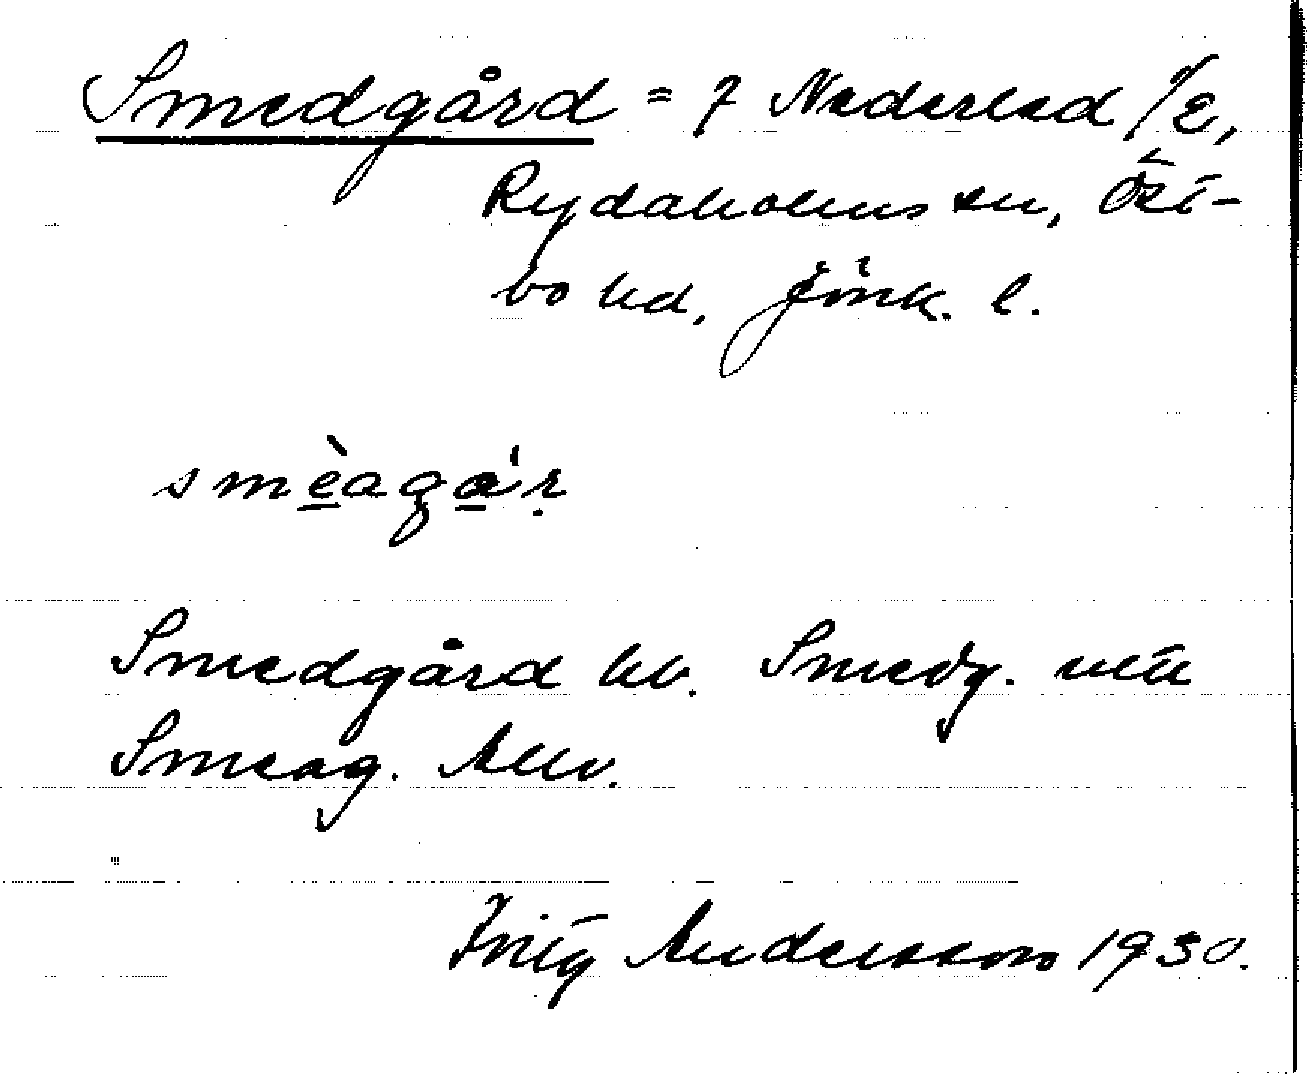 Smedgård = 7 Nederled 1/2,
Rydaholms sn, Öst-
bo hd, Jönk. l.
smèaga'r
Smedgård hv. Smedg. utt
Smeag. Allv.
Fritz Andersson 1930.